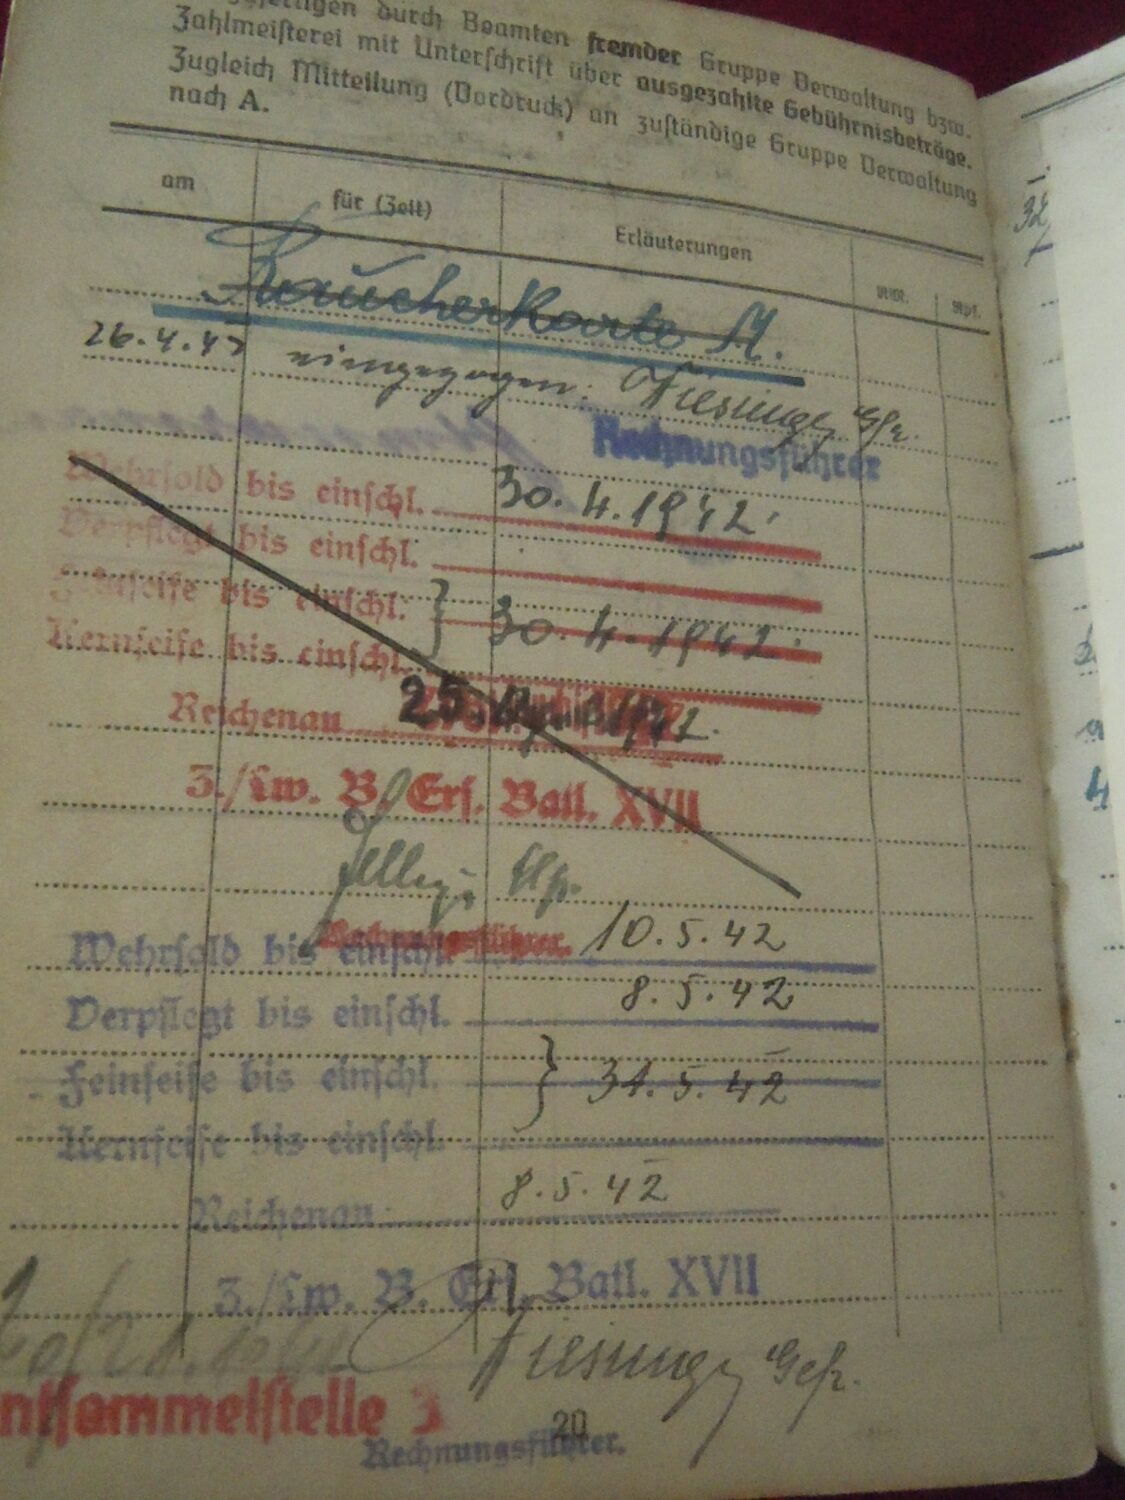 durch Beamten fremder Gruppe Verwaltung bzw.
Zahlmeisterei mit Unterschrift über ausgezahlte Gebührnisbeträge.
Zugleich Mitteilung (Vordruck) an zuständige Gruppe Verwaltung
nach A.
am
für (Zeit)
Erläuterungen
RM.
Rpf.
Raucherkarte M.
26.4.42 eingezogen:
Gefr.
Rechnungsführer
Wehrsold bis einschl. 30.4.1942.
Verpflegt bis einschl.
Feinseife bis einschl. } 30.4.1942.
Kernseife bis einschl.
Reichenau
3./Lw. B. Ers. Batl. XVII
Rechnungsführer.
Wehrsold bis einschl. 10.5.42
Verpflegt bis einschl. 8.5.42
Feinseife bis einschl. } 31.5.42
Kernseife bis einschl.
Reichenau 8.5.42
3./Lw. B. Ers. Batl. XVII
Gefr.
20
Rechnungsführer.